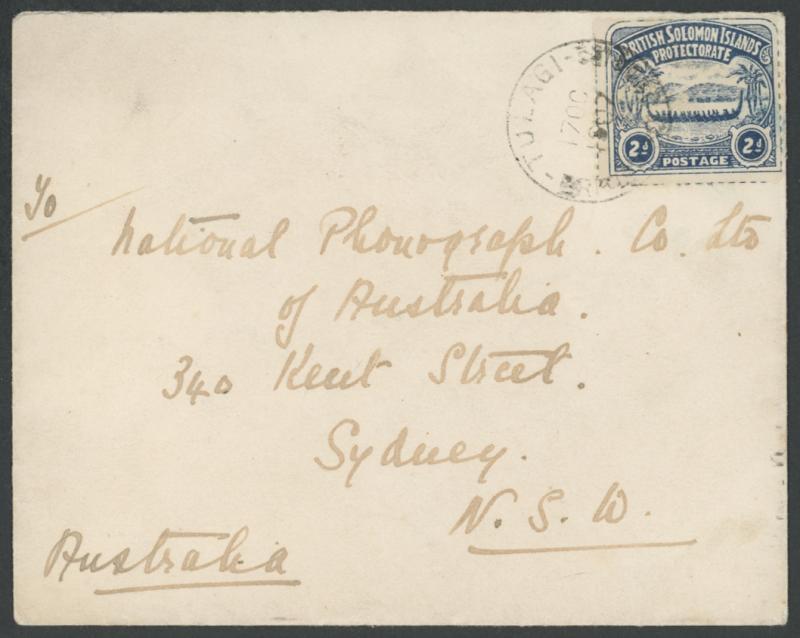 BRITISH SOLOMON ISLANDS
PROTECTORATE
2d 2d
POSTAGE
TULAGI
17 OC
1907
To
National Phonograph. Co. Ltd
of Australia.
340 Kent Street.
Sydney.
N. S. W.
Australia